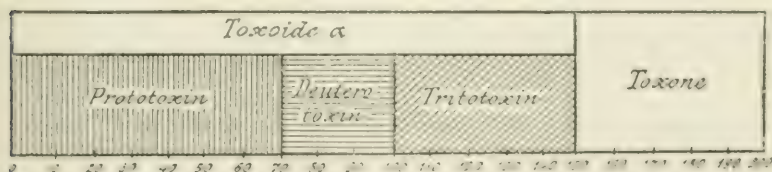 Toxoide α
Prototoxin
Deutero-
toxin
Tritotoxin
Toxone
0 10 20 30 40 50 60 70 80 90 100 110 120 130 140 150 160 170 180 190 200